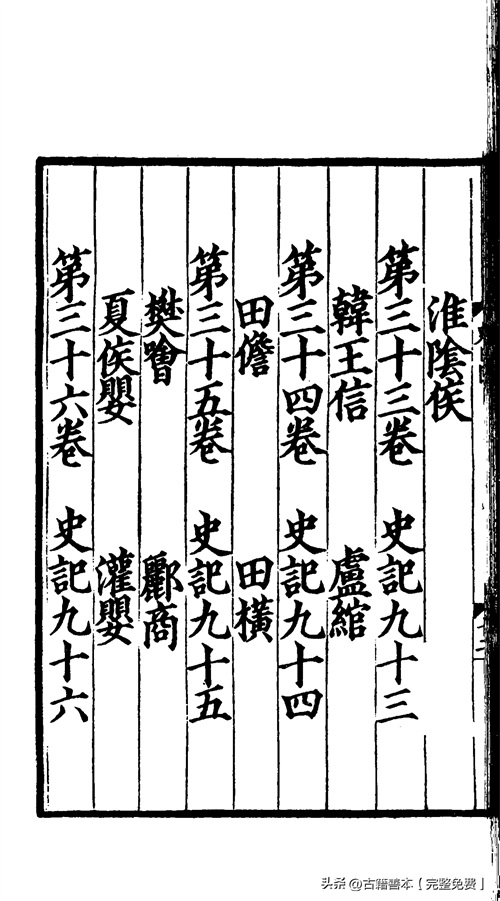 淮陰侯
第三十三卷　史記九十三
韓王信　盧綰
第三十四卷　史記九十四
田儋　田橫
第三十五卷　史記九十五
樊噲　酈商
夏侯嬰　灌嬰
第三十六卷　史記九十六
头条 @古籍善本【完整免费】